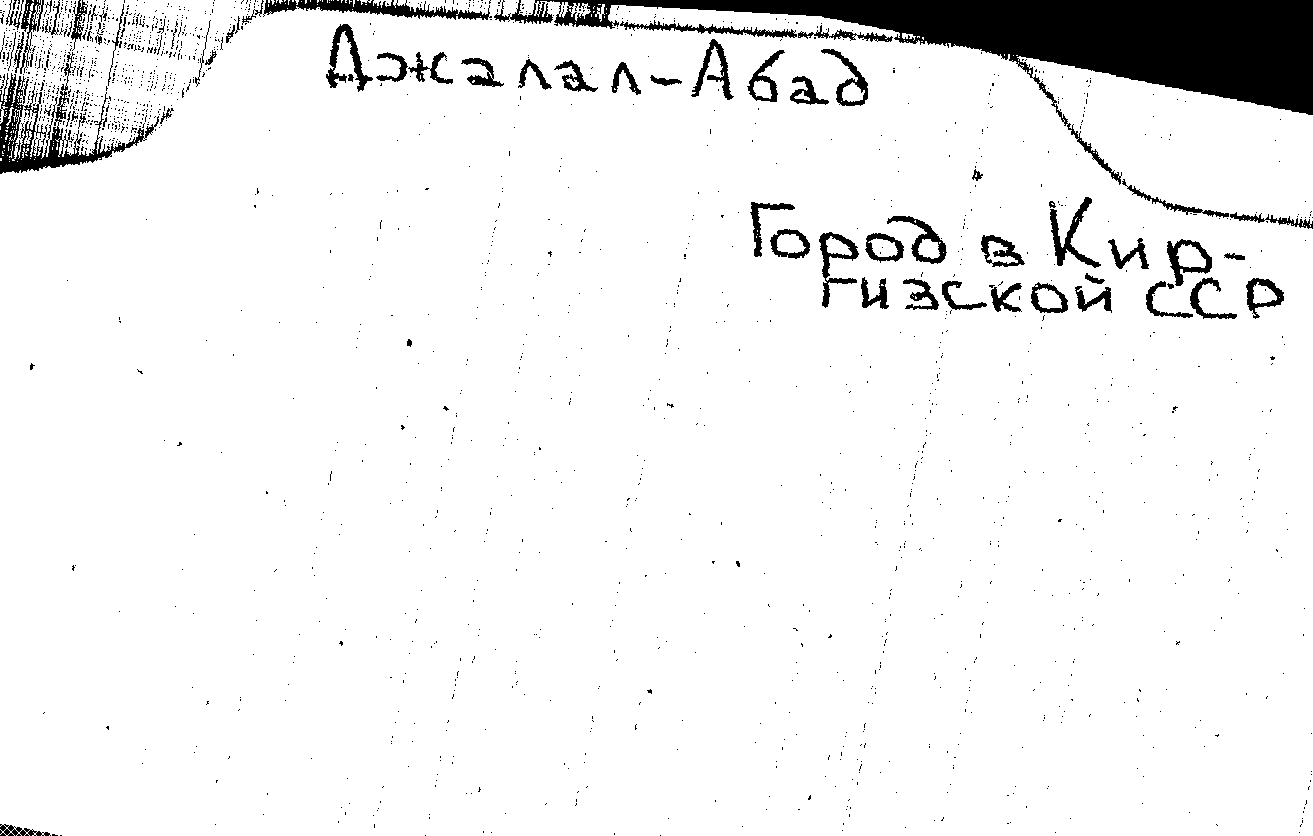 Джалал-Абад
Город в Кир-
гизской ССР